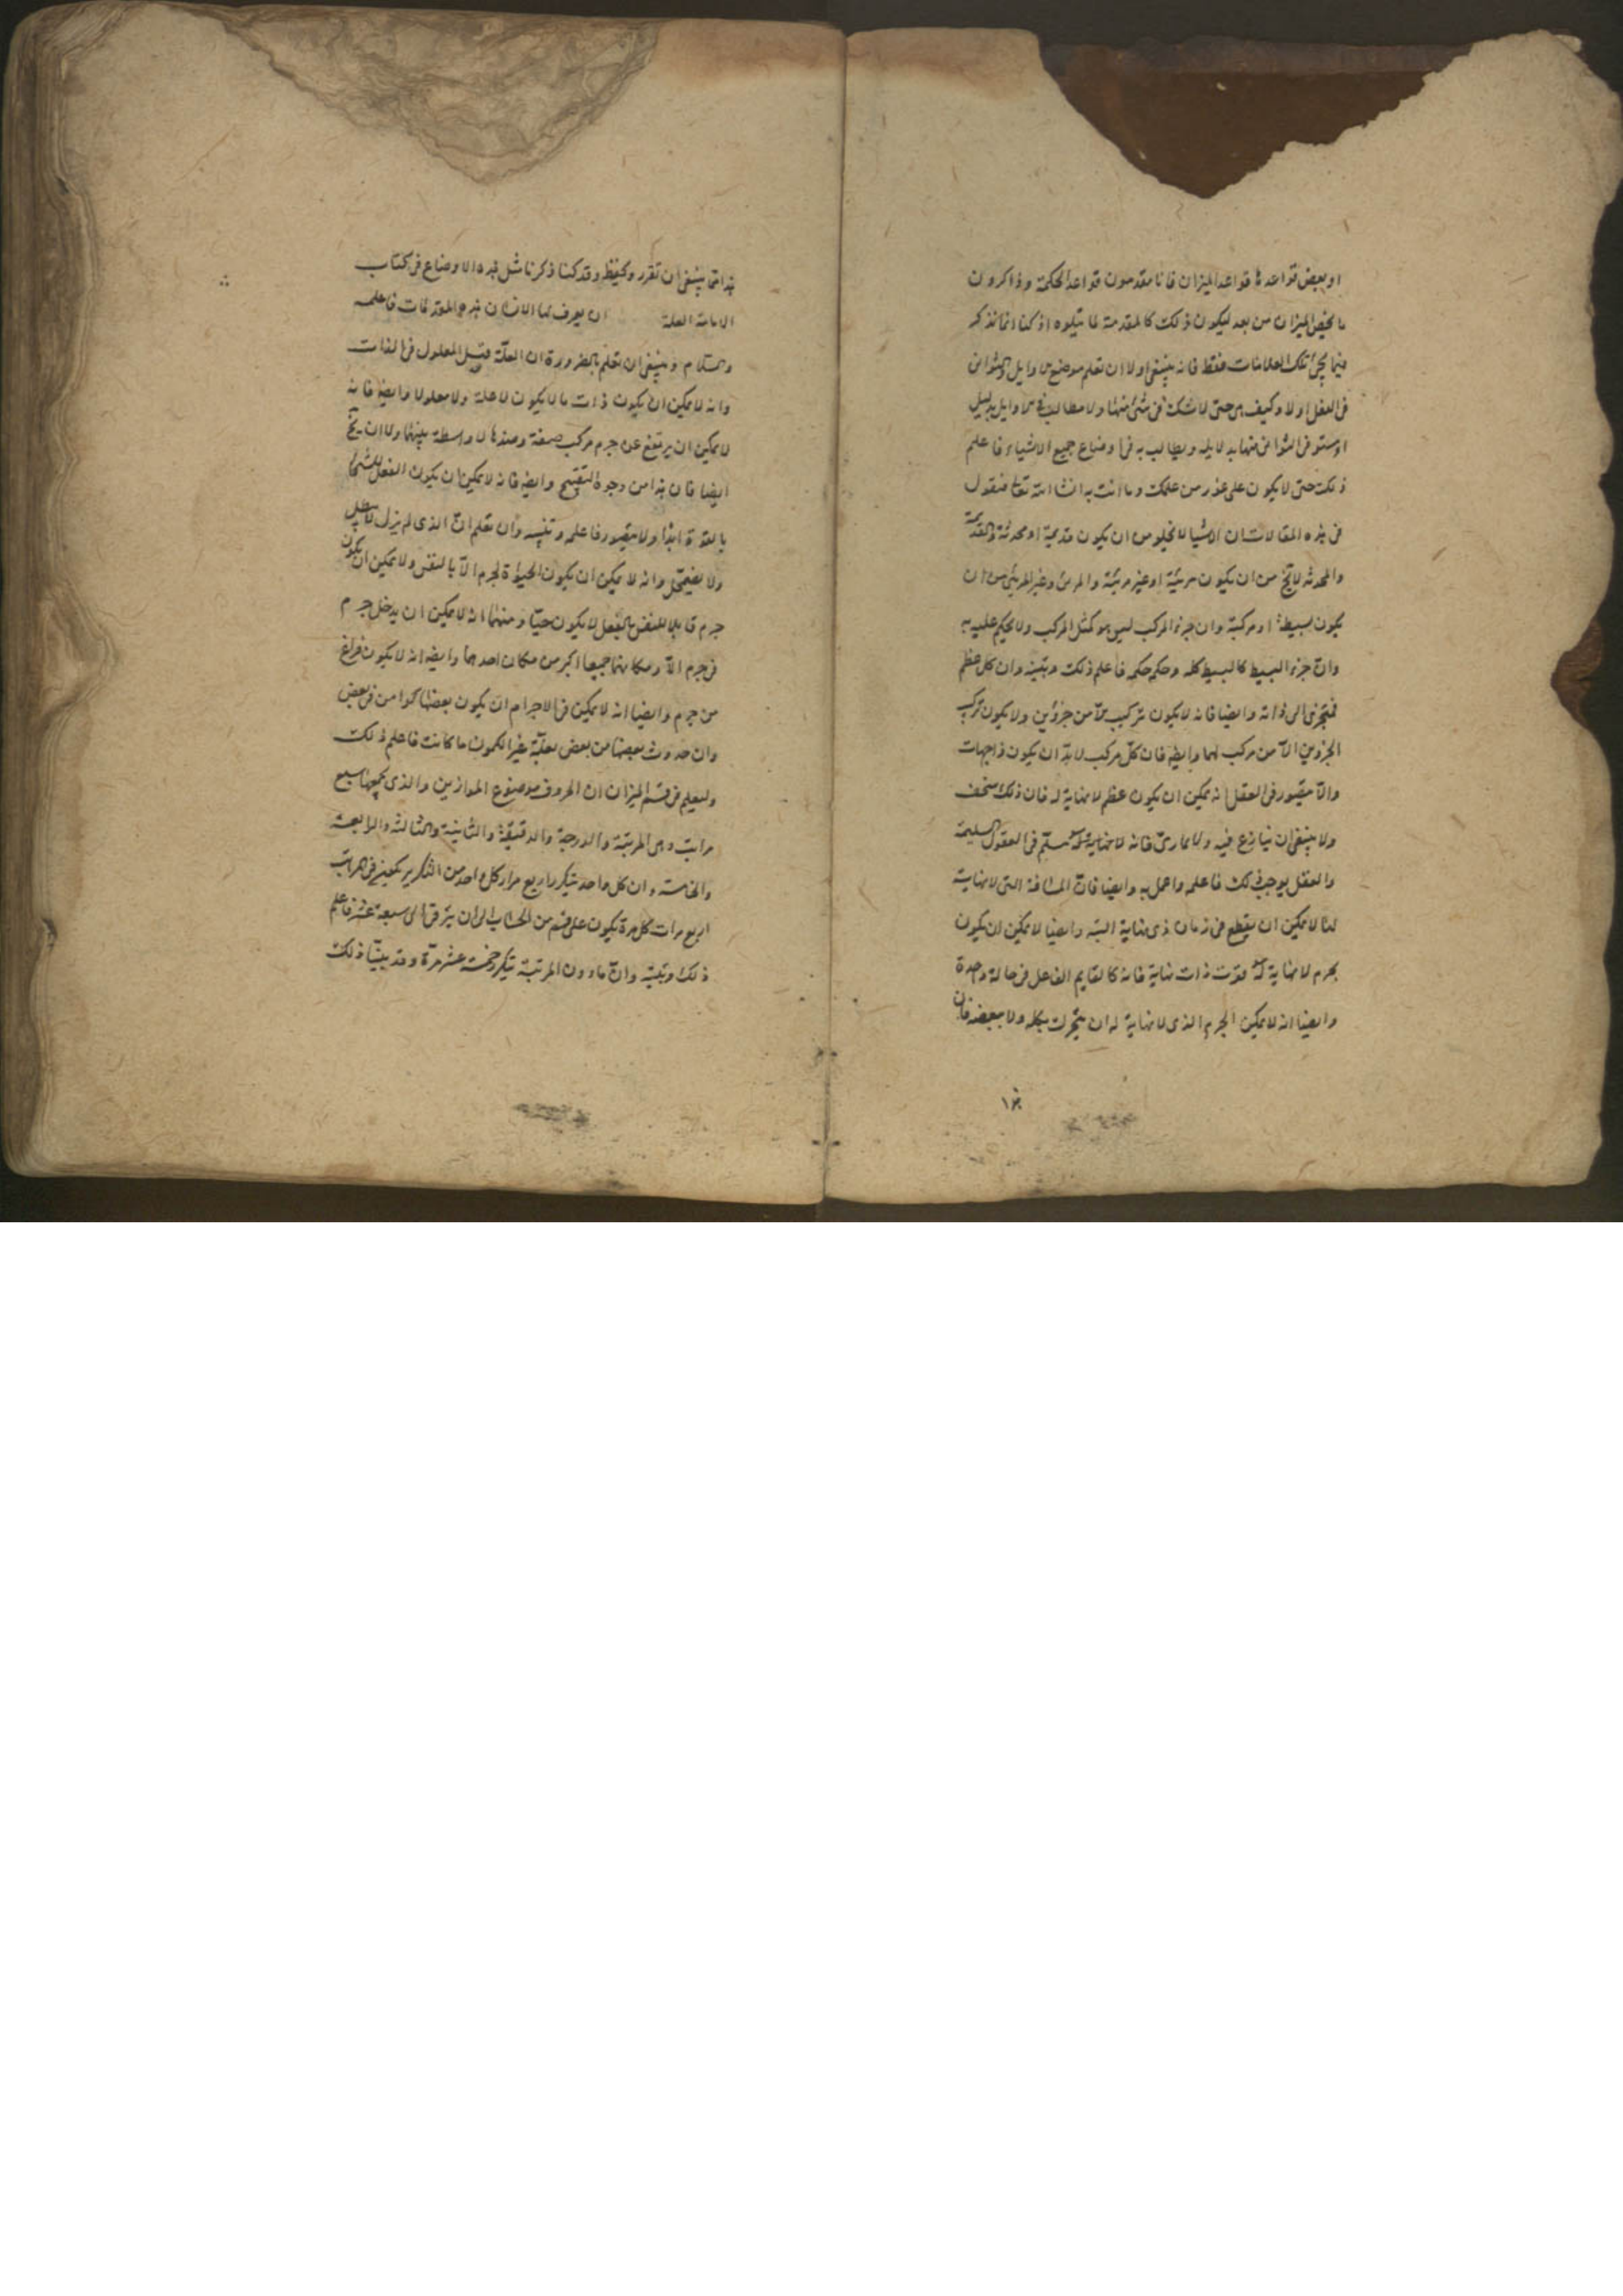 او بعض قواعدها قواعد الميزان فانا مقدمون قواعد الحكمة وذاكرون
ما يخص الميزان من بعد ليكون ذلك كالمقدمة لما يتلوه اذ كنا انما نذكر
فيما يجئ تلك العلامات فقط فانه ينبغى اولا ان تعلم موضع الاوايل والثوانى
فى العقل اولا وكيف هى حتى لا تشك فى شئ منها ولا مطالب فى الاوايل بدليل
وتستوفى الثوانى منها بدلايله ويطالب به فى اوضاع جميع الاشياء فاعلم
ذلك حتى لا يكون على عذر من علمك وما انت به انشا الله تعالى فنقول
فى هذه المقالات ان الاشيا لا تخلو من ان يكون قديمة او محدثة والقديمة
والمحدثه لا تخ من ان يكون مرئية او غير مرئية والمرئ وغير المرئى من ان
يكون بسيطة او مركبة وان جزء المركب ليس هو كمثل المركب ولا يحكم عليه به
وان جزء البسيط كالبسيط كله وحكمه حكمه فاعلم ذلك وتبينه وان كل عظم
فتجزى الى ذاته وايضا فانه لا يكون تركيب الا من جزؤين ولا يكون تركب
الجزوين الا من مركب لهما وايضا فان كل مركب لابد ان يكون ذا جهات
والا متصور فى العقل انه يمكن ان يكون عظم لا نهاية له فان ذلك سخف
ولا ينبغى ان ينازع فيه ولا يمارى فانه لا نهاية له مسلم فى العقول السليمة
والعقل يوجب ذلك فاعلمه واعمل به وايضا فان المسافة التى لا نهاية
لها لا يمكن ان يقطع فى زمان ذى نهاية البتة وايضا لا يمكن ان يكون
بجرم لا نهاية له قوت ذات نهاية فانه كالقايم الفاعل فى حالة واحدة
وايضا انه لا يمكن الجرم الذى لا نهاية له ان يتحرك بكله ولا ببعضه فان
هذا مما ينبغى ان تقرر وتحفظ وقد كنا ذكرنا مثل هذه الاوضاع فى كتاب
الامامة العلة ان يعرف بها الانسان هذه المقدمات فاعلمه
والسلام وينبغى ان تعلم بالضرورة ان العلة قبل المعلول فى الذات
وانه لا يمكن ان يكون ذات ما لا يكون لا علة ولا معلولا وايضا فانه
لا يمكن ان يرتفع عن جرم مركب صفة وضدها لا واسطة بينهما ولا ان يخ
ايضا فان هذا من وجوه التقبيح وايضا فانه لا يمكن ان يكون الفعل للشئ
بالقوة ابدا ولا متصور فاعلمه وتبينه وان تعلم ان الذى لم يزل لا يبطل
ولا يضمحل وانه لا يمكن ان يكون الحيوة لجرم الا بالنفس ولا يمكن ان يكون
جرم قابلا للنفس بالفعل لا يكون حيا ومنها انه لا يمكن ان يدخل جرم
فى جرم الا ومكانهما جميعا اكبر من مكان احدهما وايضا انه لا يكون فراغ
من جرم وايضا انه لا يمكن فى الاجرام ان يكون بعضها كوامن فى بعض
وان حدوث بعضها من بعض بعلية غير الكمون ما كانت فاعلم ذلك
وليعلم فى قسم الميزان ان الحروف موضوع الموازين والذى يجمعها سبع
مراتب وهى المرتبة والدرجة والدقيقة والثانية والثالثة والرابعة
والخامسة وان كل واحد يتكرر اربع مرار كل واحد من التكرير بمعنى فى المراتب
اربع مرات كل مرة يكون على قسم من الحساب الى ان يترقى الى سبعة عشر فاعلم
ذلك وتبينه وان ما دون المرتبة يتكرر خمسة عشر مرة وقد بينا ذلك